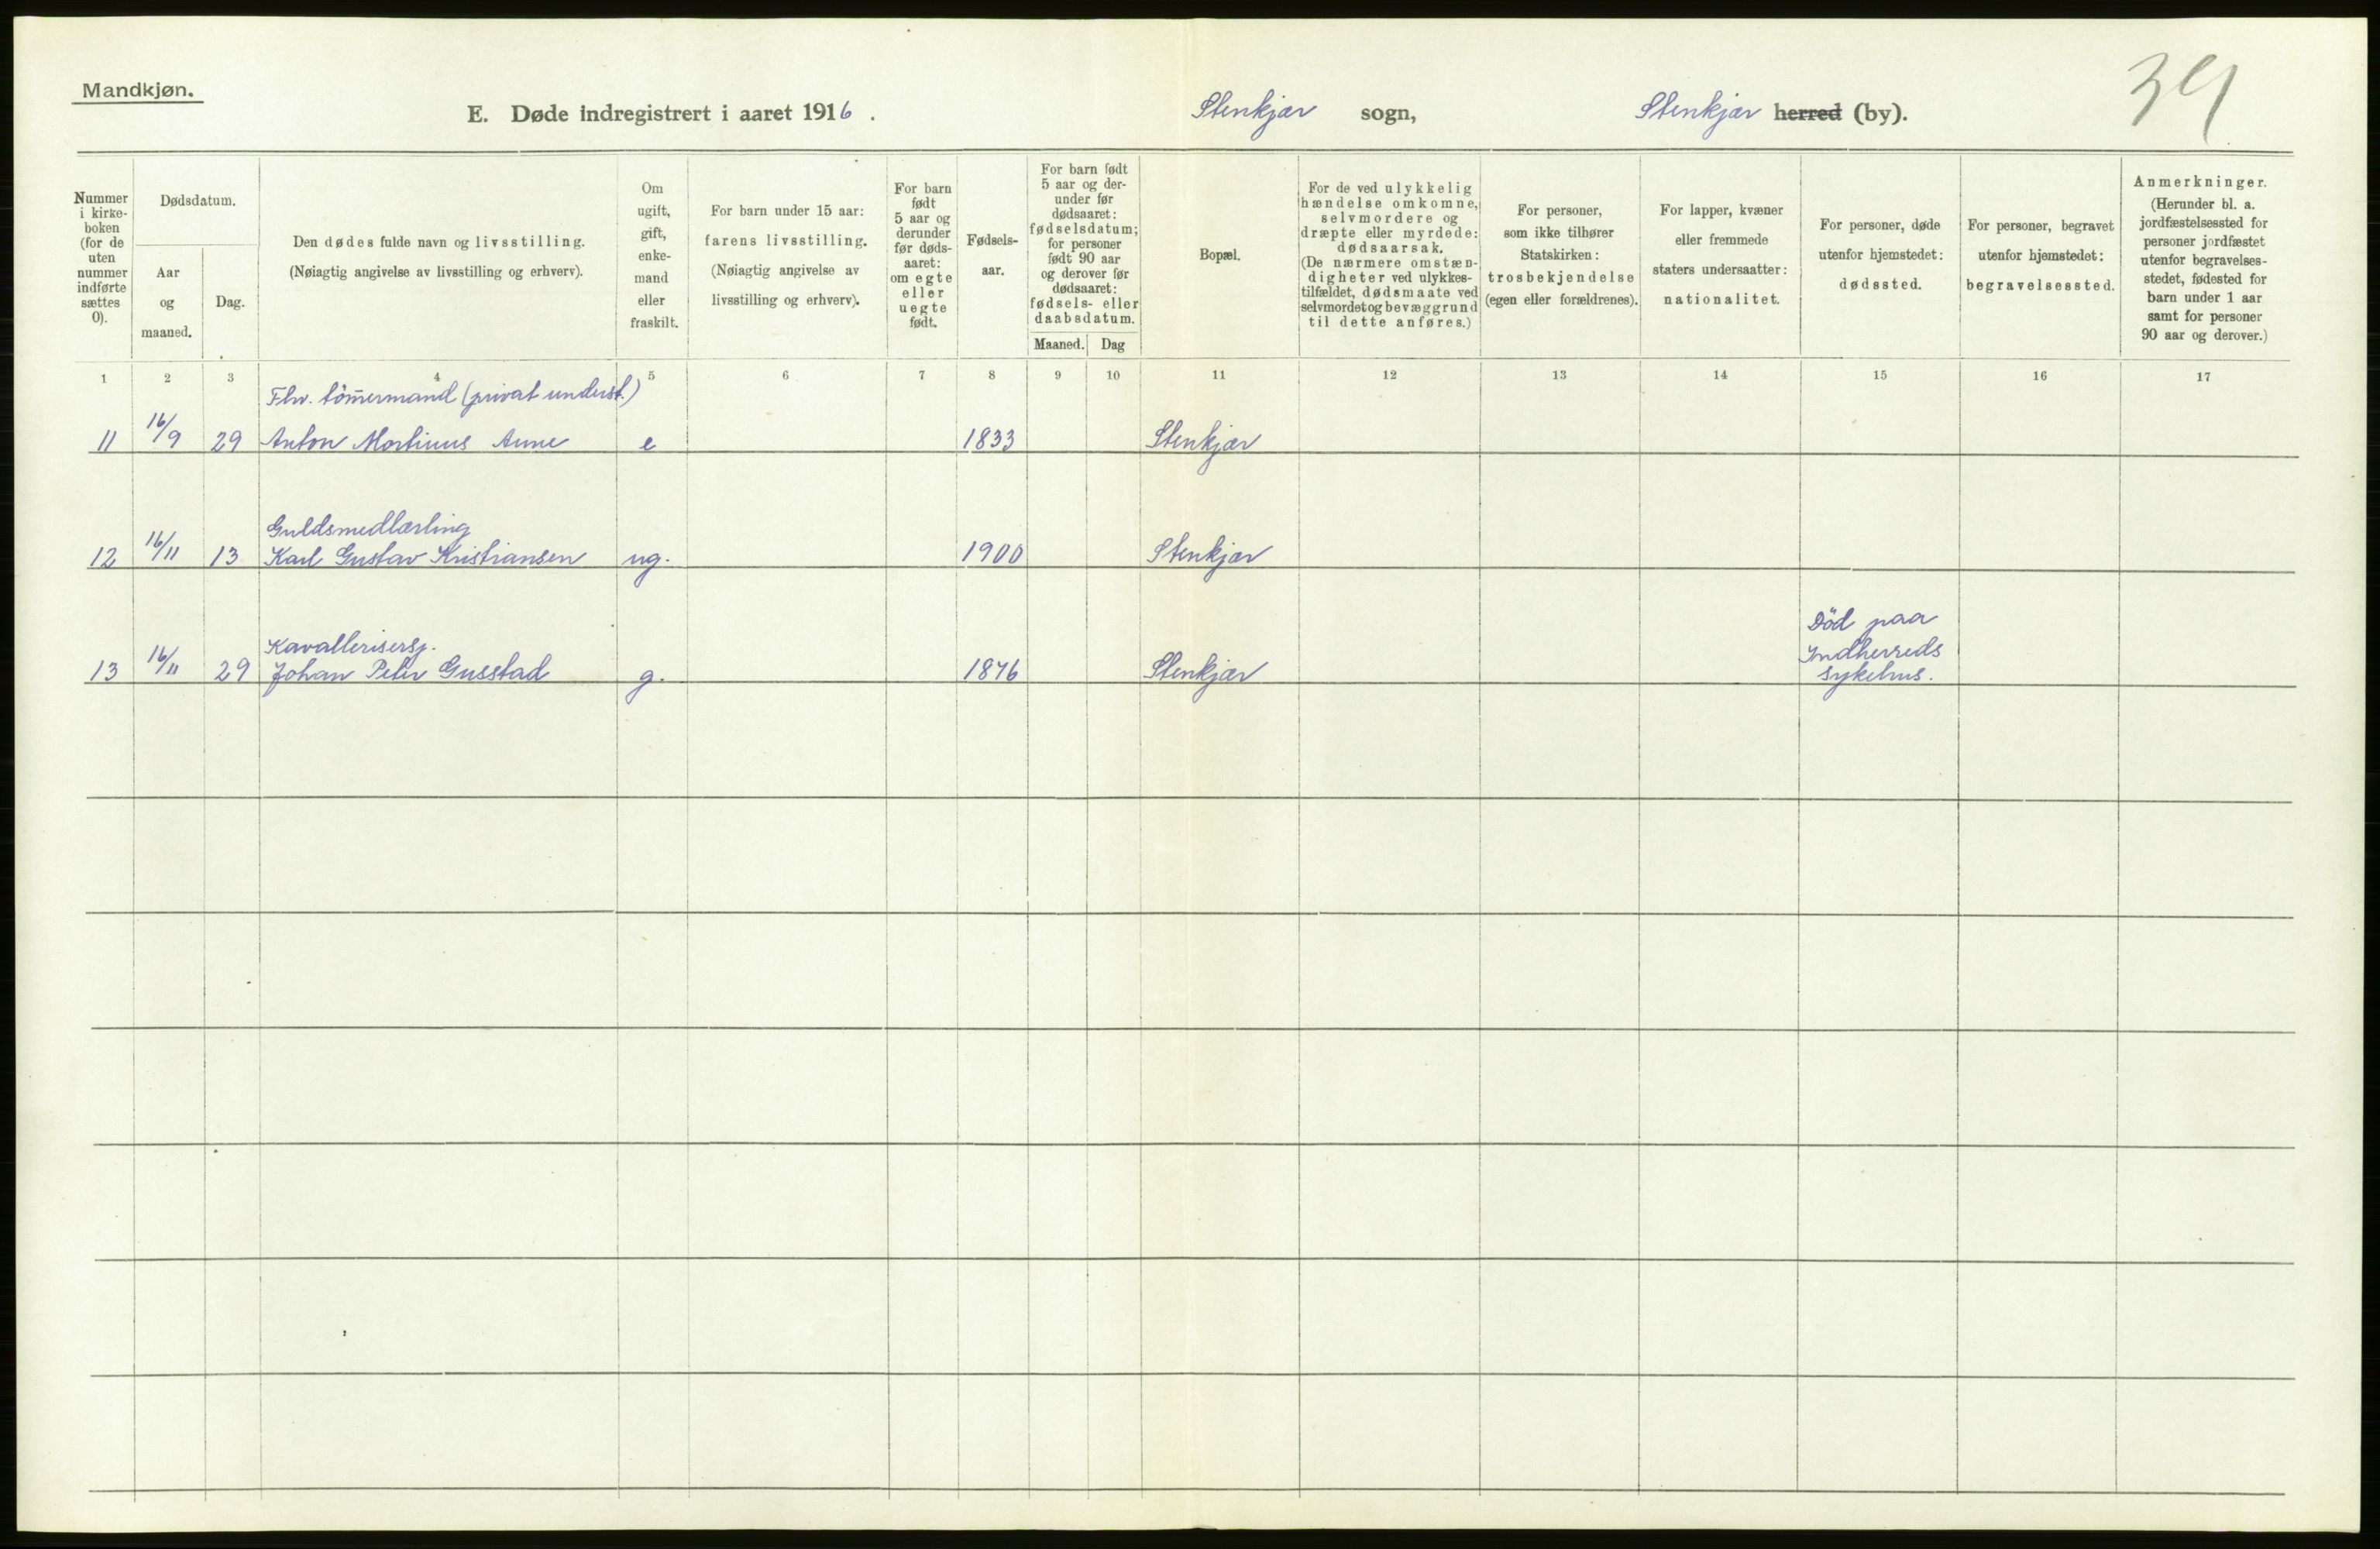 Mandkjøn.
E. Døde indregistrert i aaret 1916.
Stenkjær sogn,
Stenkjær herred (by).
Nummer
i kirke-
boken
(for de
uten
nummer
indførte
sættes
0).
Dødsdatum.
Aar
og
maaned.
Dag.
Den dødes fulde navn og livsstilling.
(Nøiagtig angivelse av livsstilling og erhverv).
Om
ugift,
gift,
enke-
mand
eller
fraskilt.
For barn under 15 aar:
farens livsstilling.
(Nøiagtig angivelse av
livsstilling og erhverv).
For barn
født
5 aar og
derunder
før døds-
aaret:
om egte
eller
uegte
født.
Fødsels-
aar.
For barn født
5 aar og der-
under før
dødsaaret:
fødselsdatum;
for personer
født 90 aar
og derover før
dødsaaret:
fødsels- eller
daabsdatum.
Maaned. Dag
Bopæl.
For de ved ulykkelig
hændelse omkomne,
selvmordere og
dræpte eller myrdede:
dødsaarsak.
(De nærmere omstæn-
digheter ved ulykkes-
tilfældet, dødsmaate ved
selvmordet og bevæggrund
til dette anføres.)
For personer,
som ikke tilhører
Statskirken:
trosbekjendelse
(egen eller forældrenes).
For lapper, kvæner
eller fremmede
staters undersaatter:
nationalitet.
For personer, døde
utenfor hjemstedet:
dødssted.
For personer, begravet
utenfor hjemstedet:
begravelsessted.
Anmerkninger.
(Herunder bl. a.
jordfæstelsessted for
personer jordfæstet
utenfor begravelses-
stedet, fødested for
barn under 1 aar
samt for personer
90 aar og derover.)
1 2 3 4 5 6 7 8 9 10 11 12 13 14 15 16 17
Fhv. tömmermand (privat underst.)
11 16/9 29 Anton Martinus Aune e 1833 Stenkjær
Guldsmedlærling
12 16/11 13 Karl Gustav Kristiansen ug. 1900 Stenkjær
Kavallerisersj.
13 16/11 29 Johan Peter Gusstad g. 1876 Stenkjær
Död paa
Indherreds
sykehus.